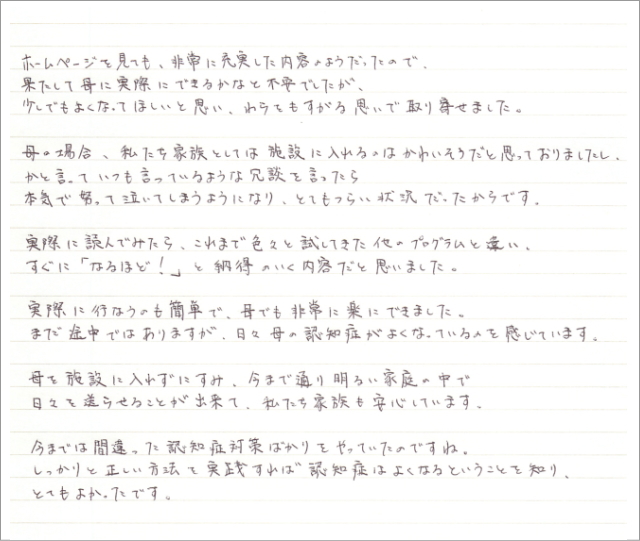 ホームページを見ても、非常に充実した内容のようだったので、
果たして母に実際にできるかなと不安でしたが、
少しでもよくなってほしいと思い、わらをもすがる思いで取り寄せました。
母の場合、私たち家族としては施設に入れるのはかわいそうだと思っておりましたし、
かと言っていつも言っているような冗談を言ったら
本気で怒って泣いてしまうようになり、とてもつらい状況だったからです。
実際に読んでみたら、これまで色々と試してきた他のプログラムと違い、
すぐに「なるほど!」と納得のいく内容だと思いました。
実際に行なうのも簡単で、母でも非常に楽にできました。
まだ途中ではありますが、日々母の認知症がよくなっているのを感じています。
母を施設に入れずにすみ、今まで通り明るい家庭の中で
日々を送らせることが出来て、私たち家族も安心しています。
今までは間違った認知症対策ばかりをやっていたのですね。
しっかりと正しい方法を実践すれば認知症はよくなるということを知り、
とてもよかったです。